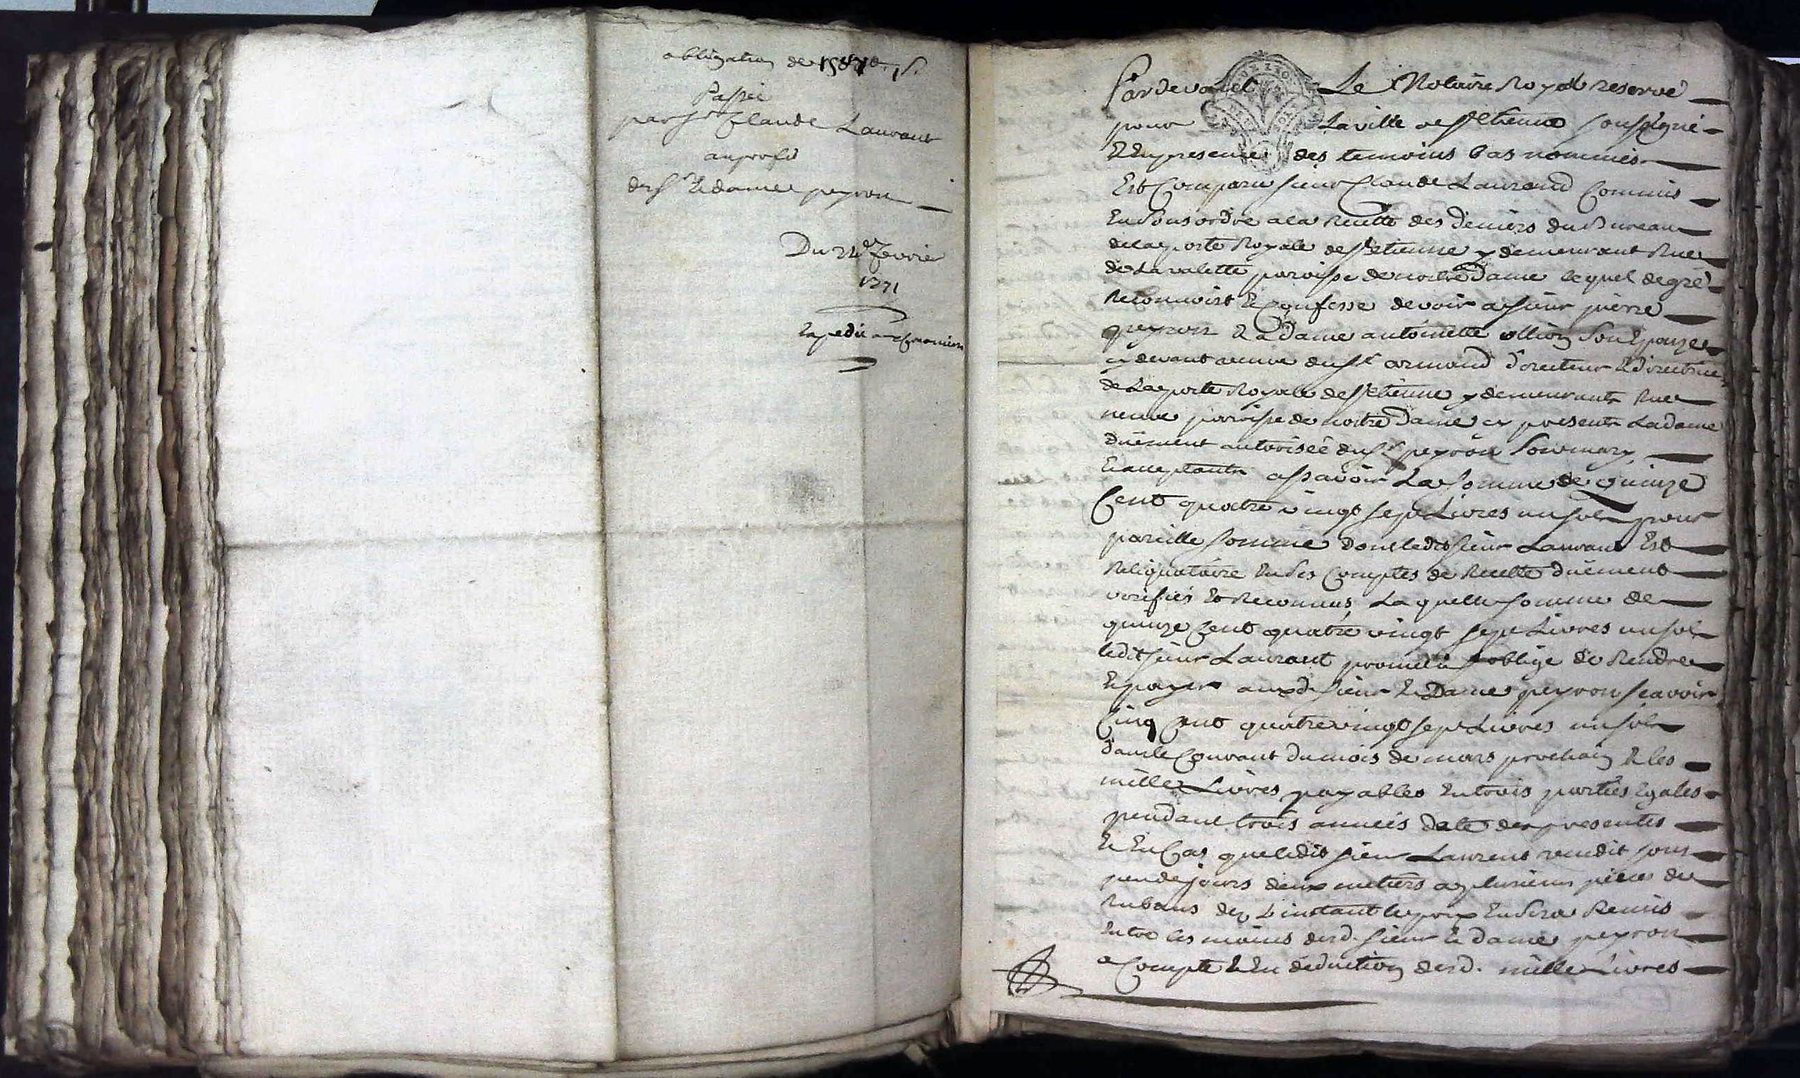 obligation de 1587# 1 s.
Passée
par Sr Claude Laurant
au profit
des Sr et dame peyron
Du 24e fevrier
1771
Expedié
Pardevant Le Notaire Royal reservé
pour La ville de St Etienne soussigné
Et En presence des temoins bas nommés
Est Comparu sieur Claude Laurand Commis
En sous ordre a la Recette des deniers du Bureau
de la poste Royale de St etienne y demeurant Rue
de La valette paroisse de notre Dame lequel de gré
Reconnoist Et Confesse devoir a sieur pierre
peyron Et a Dame antoinette ollion son Epouze
cy devant veuve du Sr armand directeur Et directrice
de La poste Royale de St etienne y demeurants Rue
neuve paroisse de notre Dame cy presents La dame
duement autorisée du Sr peyron son mary
Et acceptants assavoir La somme de quinze
Cent quatre vingt sept Livres un sol pour
pareille somme dont ledit sieur Laurant Est
Reliquataire En ses Comptes de Recette duement
verifiés Et Reconnus La quelle somme de
quinze Cent quatre vingt sept Livres un sol
ledit sieur Laurant promet et s'oblige de Rendre
Et payer auxd. sieur Et Dame peyron sçavoir
Cinq Cent quatre vingt sept Livres un sol
dans le Courant du mois de mars prochain Et les
mille Livres payables En trois parties Egales
pendant trois années date des presentes
Et En Cas que ledit sieur Laurent vendit sous
peu de jours deux metiers a plusieurs pieces de
Rubans dez L'instant le prix En sera Remis
Entre les mains desd. sieur Et dame peyron
a Compte Et En deduction desd. mille Livres